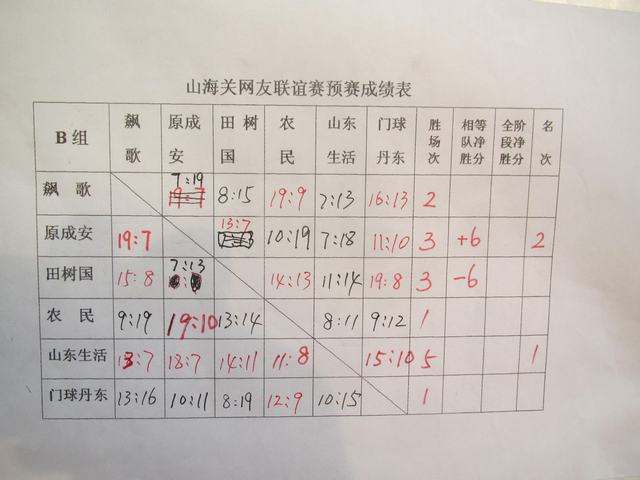 山海关网友联谊赛预赛成绩表
B组 飙歌 原成安 田树国 农民 山东生活 门球丹东 胜场次 相等队净胜分 全阶段净胜分 名次
飙歌 7:19 8:15 19:9 7:13 16:13 2
原成安 19:7 13:7 10:19 7:18 11:10 3 +6 2
田树国 15:8 7:13 14:13 11:14 19:8 3 -6
农民 9:19 19:10 13:14 8:11 9:12 1
山东生活 13:7 18:7 14:11 11:8 15:10 5 1
门球丹东 13:16 10:11 8:19 12:9 10:15 1